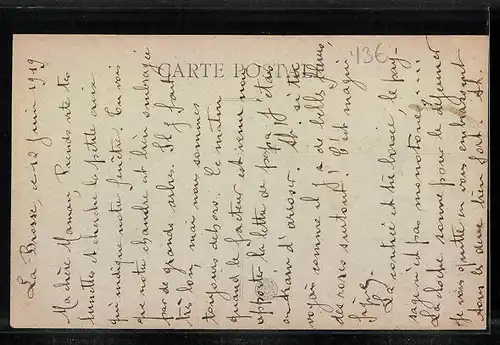 CARTE POSTALE
136
La Brosse, ce 12 Juin 1919
Ma chère Maman, Prends vite tes
lunettes et cherche la petite croix
qui indique notre fenêtre! Tu vois
que notre chambre est bien ombragée
par de grands arbres. Il y fait
très bon, mais nous sommes
toujours dehors. Ce matin
quand le facteur est venu nous
apporter la lettre de papa j'étais
en train d'arroser. Ah! si tu
voyais comme il y a de belles fleurs,
des roses surtout! C'est magni-
fique.
La contrée est très boisée, le pay-
sage n'est pas monotone!...
La cloche sonne pour le déjeuner
Je vous quitte en vous embrassant
tous les deux bien fort.